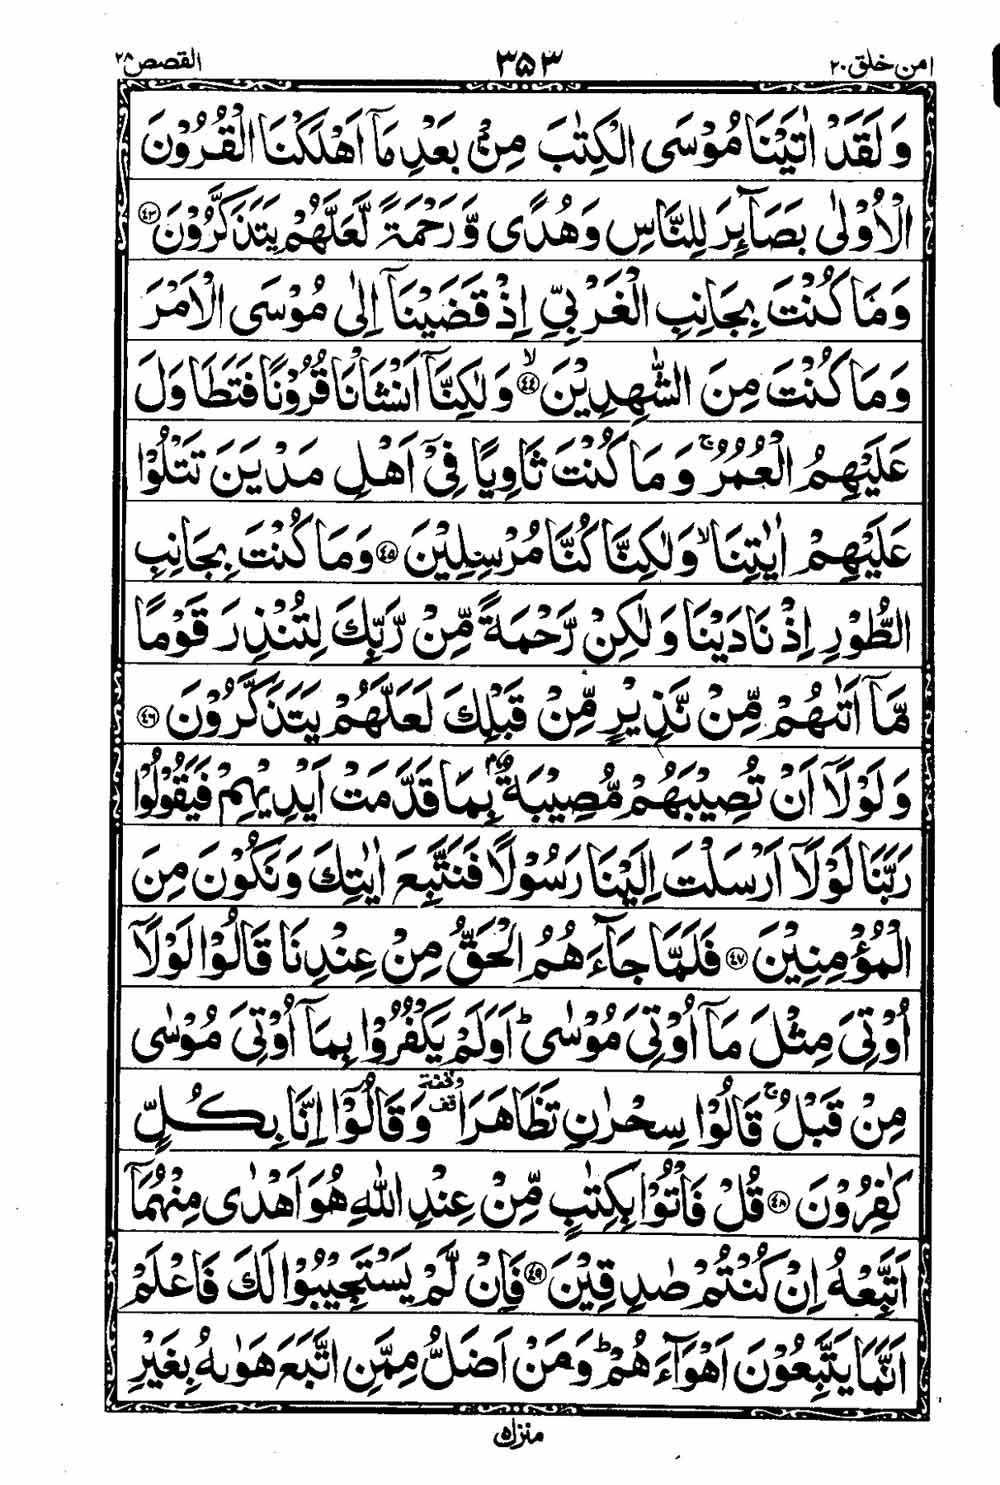 امن خلق ٢٠ ٣٥٣ القصص ٢٨
وَلَقَدْ اٰتَيْنَا مُوْسَى الْكِتٰبَ مِنْۢ بَعْدِ مَاۤ اَهْلَكْنَا الْقُرُوْنَ
الْاُوْلٰى بَصَآئِرَ لِلنَّاسِ وَهُدًى وَّرَحْمَةً لَّعَلَّهُمْ يَتَذَكَّرُوْنَ ٤٣
وَمَا كُنْتَ بِجَانِبِ الْغَرْبِيِّ اِذْ قَضَيْنَاۤ اِلٰى مُوْسَى الْاَمْرَ
وَمَا كُنْتَ مِنَ الشّٰهِدِيْنَ ٤٤ۙ وَلٰكِنَّاۤ اَنْشَاْنَا قُرُوْنًا فَتَطَاوَلَ
عَلَيْهِمُ الْعُمُرُ ۚ وَمَا كُنْتَ ثَاوِيًا فِيْۤ اَهْلِ مَدْيَنَ تَتْلُوْا
عَلَيْهِمْ اٰيٰتِنَا ۙ وَلٰكِنَّا كُنَّا مُرْسِلِيْنَ ٤٥ وَمَا كُنْتَ بِجَانِبِ
الطُّوْرِ اِذْ نَادَيْنَا وَلٰكِنْ رَّحْمَةً مِّنْ رَّبِّكَ لِتُنْذِرَ قَوْمًا
مَّاۤ اَتٰىهُمْ مِّنْ نَّذِيْرٍ مِّنْ قَبْلِكَ لَعَلَّهُمْ يَتَذَكَّرُوْنَ ٤٦
وَلَوْلَاۤ اَنْ تُصِيْبَهُمْ مُّصِيْبَةٌۢ بِمَا قَدَّمَتْ اَيْدِيْهِمْ فَيَقُوْلُوْا
رَبَّنَا لَوْلَاۤ اَرْسَلْتَ اِلَيْنَا رَسُوْلًا فَنَتَّبِعَ اٰيٰتِكَ وَنَكُوْنَ مِنَ
الْمُؤْمِنِيْنَ ٤٧ فَلَمَّا جَآءَهُمُ الْحَقُّ مِنْ عِنْدِنَا قَالُوْا لَوْلَاۤ
اُوْتِيَ مِثْلَ مَاۤ اُوْتِيَ مُوْسٰى ؕ اَوَلَمْ يَكْفُرُوْا بِمَاۤ اُوْتِيَ مُوْسٰى
مِنْ قَبْلُ ۚ قَالُوْا سِحْرٰنِ تَظَاهَرَا وقفة قف وَقَالُوْۤا اِنَّا بِكُلٍّ
كٰفِرُوْنَ ٤٨ قُلْ فَاْتُوْا بِكِتٰبٍ مِّنْ عِنْدِ اللّٰهِ هُوَ اَهْدٰى مِنْهُمَاۤ
اَتَّبِعْهُ اِنْ كُنْتُمْ صٰدِقِيْنَ ٤٩ فَاِنْ لَّمْ يَسْتَجِيْبُوْا لَكَ فَاعْلَمْ
اَنَّمَا يَتَّبِعُوْنَ اَهْوَآءَهُمْ ؕ وَمَنْ اَضَلُّ مِمَّنِ اتَّبَعَ هَوٰىهُ بِغَيْرِ
منزل ٥